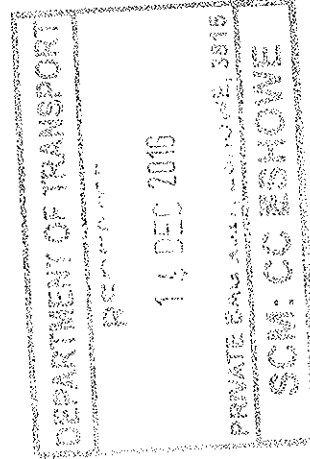 DEPARTMENT OF TRANSPORT
14 DEC 2016
PRIVATE BAG 3815
SCM: CC ESHOWE